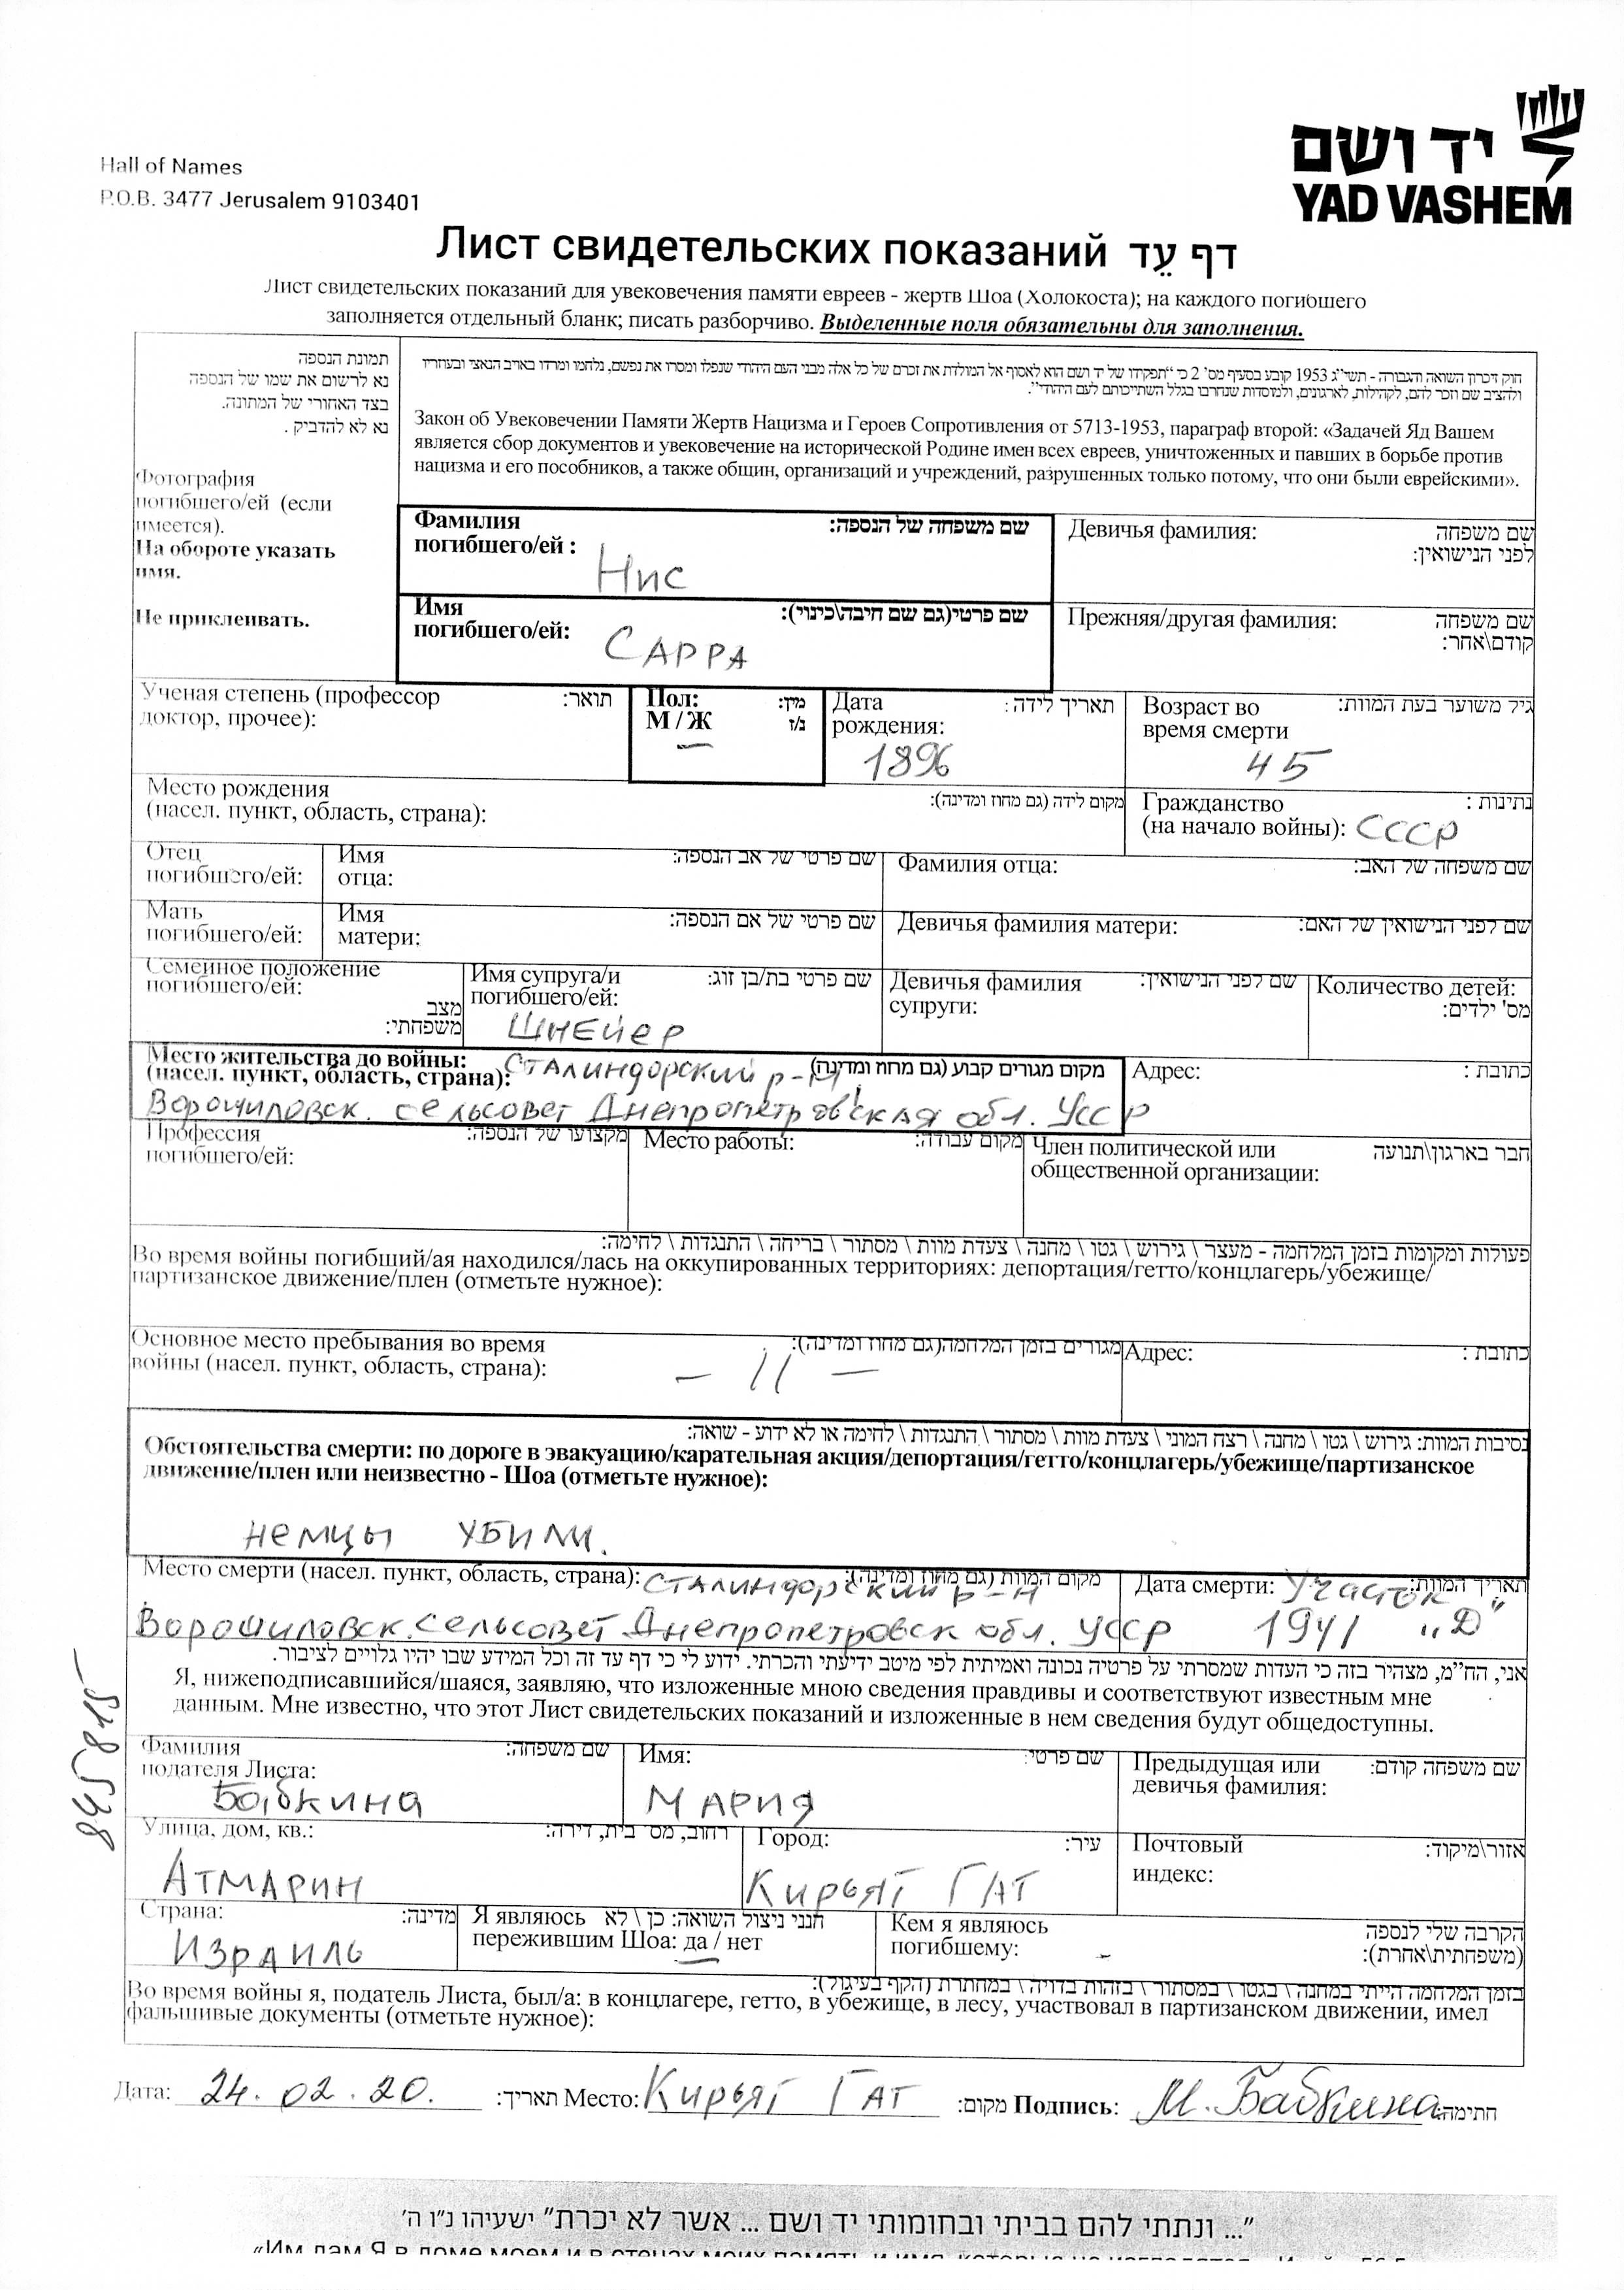 Hall of Names
P.O.B. 3477 Jerusalem 9103401
יד ושם
YAD VASHEM
Лист свидетельских показаний דף עֵד
Лист свидетельских показаний для увековечения памяти евреев - жертв Шоа (Холокоста); на каждого погибшего
заполняется отдельный бланк; писать разборчиво. Выделенные поля обязательны для заполнения.
תמונת הנספה
נא לרשום את שמו של הנספה
בצד האחורי של המתונה.
נא לא להדביק .
Фотография
погибшего/ей (если
имеется).
На обороте указать
имя.
Не приклеивать.
חוק זיכרון השואה והגבורה - תשי"ג 1953 קובע בסעיף מס' 2 כי "תפקידו של יד ושם הוא לאסוף אל המולדת את זכרם של כל אלה מבני העם היהודי שנפלו ומסרו את נפשם, נלחמו ומרדו באויב הנאצי ובעוזריו
ולהציב שם וזכר להם, לקהילות, לארגונים, ולמוסדות שנחרבו בגלל השתייכותם לעם היהודי".
Закон об Увековечении Памяти Жертв Нацизма и Героев Сопротивления от 5713-1953, параграф второй: «Задачей Яд Вашем
является сбор документов и увековечение на исторической Родине имен всех евреев, уничтоженных и павших в борьбе против
нацизма и его пособников, а также общин, организаций и учреждений, разрушенных только потому, что они были еврейскими».
Фамилия שם משפחה של הנספה:
погибшего/ей :
Нис
Девичья фамилия: שם משפחה
לפני הנישואין:
Имя שם פרטי(גם שם חיבה\כינוי):
погибшего/ей:
САРРА
Прежняя/другая фамилия: שם משפחה
קודם\אחר:
Ученая степень (профессор תואר:
доктор, прочее):
Пол: מין:
М / Ж ז/נ
Дата תאריך לידה :
рождения:
1896
Возраст во גיל משוער בעת המוות:
время смерти
45
Место рождения מקום לידה (גם מחוז ומדינה):
(насел. пункт, область, страна):
Гражданство נתינות :
(на начало войны): СССР
Отец
погибшего/ей:
Имя שם פרטי של אב הנספה:
отца:
Фамилия отца: שם משפחה של האב:
Мать
погибшего/ей:
Имя שם פרטי של אם הנספה:
матери:
Девичья фамилия матери: שם לפני הנישואין של האם:
Семейное положение
погибшего/ей:
מצב
משפחתי:
Имя супруга/и שם פרטי בת/בן זוג:
погибшего/ей:
ШНЕЙЕР
Девичья фамилия שם לפני הנישואין:
супруги:
Количество детей:
מס' ילדים:
Место жительства до войны: מקום מגורים קבוע (גם מחוז ומדינה)
(насел. пункт, область, страна): Сталиндорский р-н
Ворошиловск. сельсовет Днепропетровская обл. УССР
Адрес: כתובת :
Профессия מקצועו של הנספה:
погибшего/ей:
Место работы: מקום עבודה:
Член политической или חבר בארגון\תנועה
общественной организации:
פעולות ומקומות בזמן המלחמה - מעצר \ גירוש \ גטו \ מחנה \ צעדת מוות \ מסתור \ בריחה \ התנגדות \ לחימה:
Во время войны погибший/ая находился/лась на оккупированных территориях: депортация/гетто/концлагерь/убежище/
партизанское движение/плен (отметьте нужное):
Основное место пребывания во время מגורים בזמן המלחמה(גם מחוז ומדינה):
войны (насел. пункт, область, страна):
- 11 -
Адрес: כתובת :
נסיבות המוות: גירוש \ גטו \ מחנה \ רצח המוני \ צעדת מוות \ מסתור \ התנגדות \ לחימה או לא ידוע - שואה:
Обстоятельства смерти: по дороге в эвакуацию/карательная акция/депортация/гетто/концлагерь/убежище/партизанское
движение/плен или неизвестно - Шоа (отметьте нужное):
немцы убили.
Место смерти (насел. пункт, область, страна): מקום המוות (גם מחוז ומדינה):
Сталиндорский р-н
Ворошиловск. сельсовет Днепропетровск обл. УССР
Дата смерти: תאריך המוות:
Участок
1941 „Д"
אני, הח"מ, מצהיר בזה כי העדות שמסרתי על פרטיה נכונה ואמיתית לפי מיטב ידיעתי והכרתי. ידוע לי כי דף עד זה וכל המידע שבו יהיו גלויים לציבור.
Я, нижеподписавшийся/шаяся, заявляю, что изложенные мною сведения правдивы и соответствуют известным мне
данным. Мне известно, что этот Лист свидетельских показаний и изложенные в нем сведения будут общедоступны.
Фамилия שם משפחה:
подателя Листа:
Бабкина
Имя: שם פרטי:
МАРИЯ
Предыдущая или שם משפחה קודם:
девичья фамилия:
Улица, дом, кв.: רחוב, מס בית, דירה:
АТМАРИН
Город: עיר:
Кирьят ГАТ
Почтовый אזור\מיקוד:
индекс:
Страна: מדינה:
ИЗРАИЛЬ
Я являюсь הנני ניצול השואה: כן \ לא
пережившим Шоа: да / нет
Кем я являюсь הקרבה שלי לנספה
погибшему: (משפחתית\אחרת):
-
בזמן המלחמה הייתי במחנה \ בגטו \ במסתור \ בזהות בדויה \ במחתרת (הקף בעיגול):
Во время войны я, податель Листа, был/а: в концлагере, гетто, в убежище, в лесу, участвовал в партизанском движении, имел
фальшивые документы (отметьте нужное):
Дата: 24.02.20. תאריך: Место: Кирьят Гат מקום: Подпись: М. Бабкина חתימה:
"... ונתתי להם בביתי ובחומותי יד ושם ... אשר לא יכרת" ישעיהו נ"ו ה'